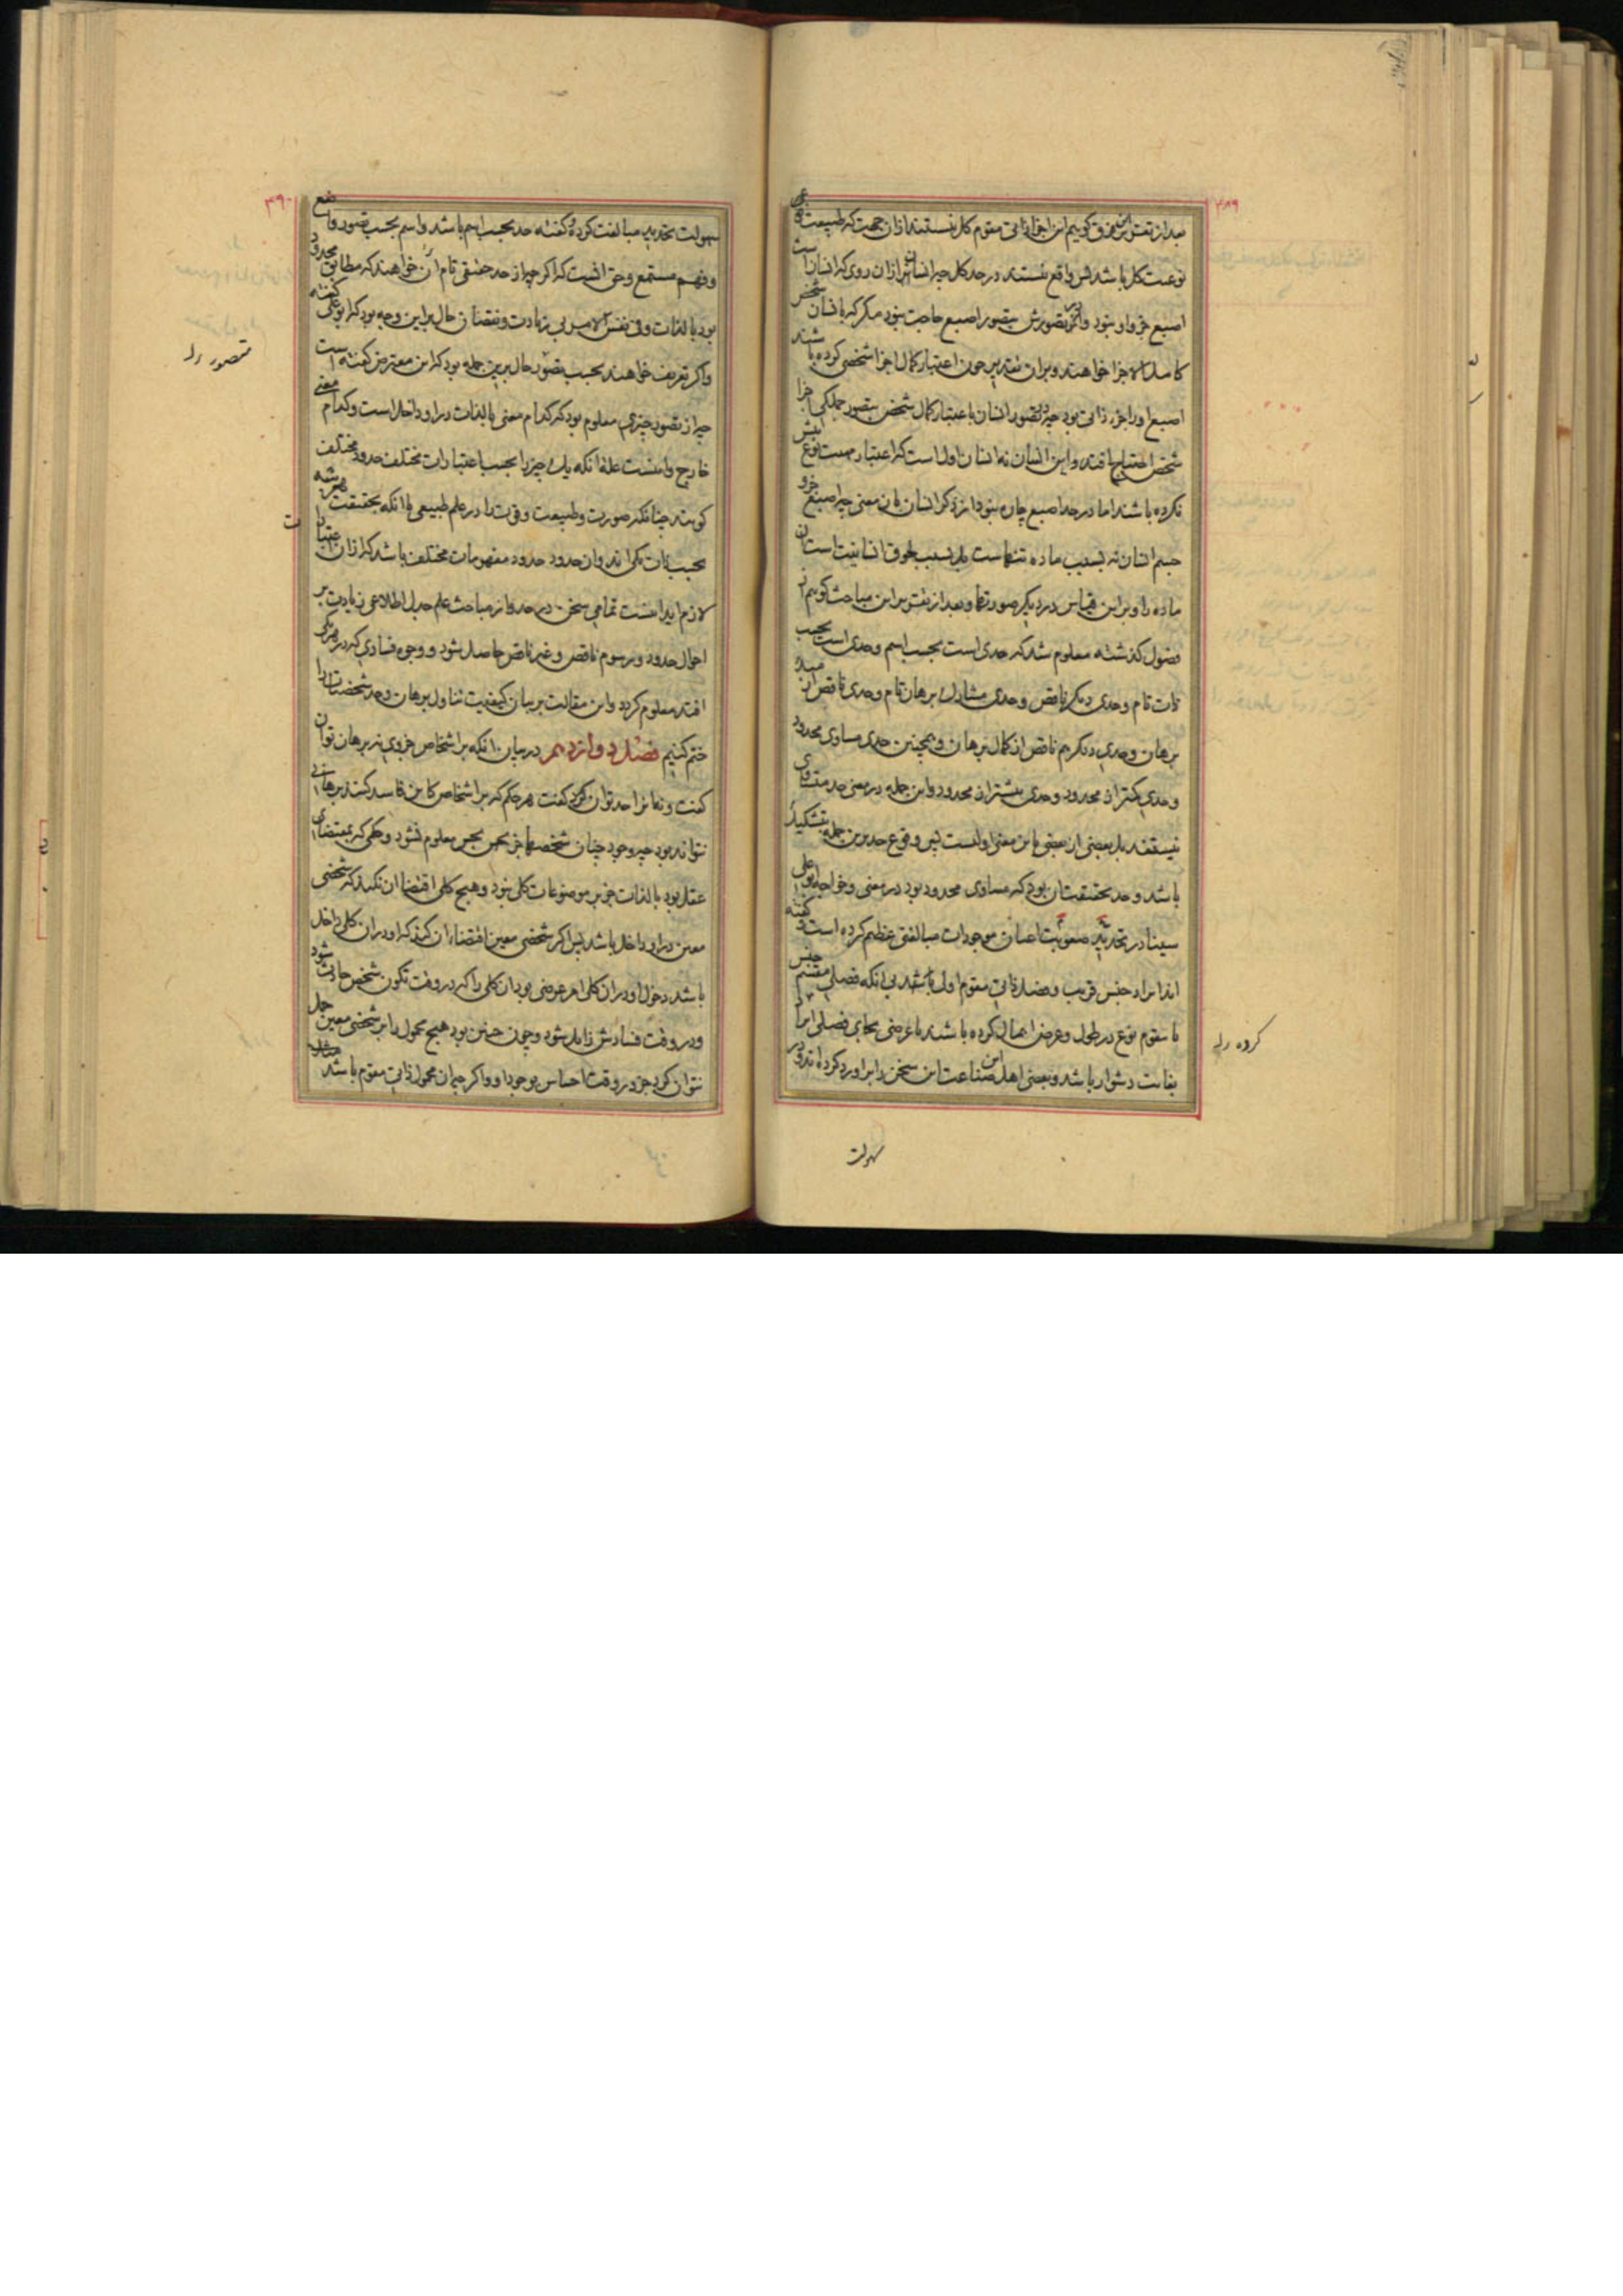 ۳۸۹
بعد از تقدیر این فرق گوییم این اجزا ذاتی مقوم کل نیستند از آن جهت که طبیعت
نوعیت کل باشد پس واقع نیستند در حد کل چه انسان را از آن روی که انسان است
اصبع جزو او نبود و در تصورش بتصور اصبع حاجت نبود مگر که بانسان شخص
کامل الاجزا خواهند و بر آن تقدیر چون اعتبار کمال اجزا شخصی کرده باشند
اصبع او را جزء ذاتی بود چه در تصور انسان باعتبار کمال شخص بتصور جملگی اجزا
شخص احتیاج افتد و این انسان نه انسان اول است که اعتبار نوع
نکرده باشند اما در حد اصبع چاره نبود از ذکر انسان بآن معنی چه اصبع جزو
جسم انسان نه بسبب ماده تنهاست بل بسبب لحوق انسانیت است آن
ماده را و برین قیاس در دیگر صورتها و بعد از تقدیر این مباحث گوییم از
فصول گذشته معلوم شد که حدی است بحسب اسم و حدی است بحسب
ذات تام و حدی دیگر ناقص و حدی مشارک برهان تام و حدی ناقص مبدأ
برهان و حدی دیگر هم ناقص از کمال برهان و همچنین حدی مساوی محدود
و حدی کمتر از محدود و حدی بیشتر از محدود و این جمله در معنی حد متساوی
نیستند بل بعضی از بعضی باین معنی اولیست پس وقوع حد برین جمله بتشکیک
باشد و حد بحقیقت آن بود که مساوی محدود بود در معنی و خواجه ابوعلی
سینا در تحدید صعوبت اعیان موجودات مبالغتی عظیم کرده است و گفته
ایراد جنس قریب و فصل ذاتی مقوم اول باشد بی آنکه فصلی مقسم جنس
یا مقوم نوع در طول و عرض اهمال کرده باشند یا عرضی بجای فصلی ایراد
بغایت دشوار باشد و بعضی اهل این صناعت این سخن را بر او رد کرده‌اند و در
کرده
سهولت
۳۹۰
سهولت تحدید مبالغت کرده و گفته حد بحسب اسم باشد و اسم بحسب تصور واضع
و فهم مستمع و حق آنست که اگر چه از حد حقیقی تام آن خواهند که مطابق محدود
بود بالذات و فی نفس الامر بی زیادت و نقصان حال برین وجه بود که بوعلی گفته
و اگر تعریف خواهند بحسب تصور حال برین جمله بود که این معترض گفته است
چه از تصور چیزی معلوم بود که کدام معنی بالذات در او داخل است و کدام معنی
خارج و اینست علت آنکه یک چیز را بحسب اعتبارات مختلف حدود مختلف
گویند چنانکه صورت و طبیعت و قوت را در علم طبیعی با آنکه بحقیقت هر سه
بحسب ذات یکی‌اند و آن حدود حدود مفهومات مختلف باشد که از آن
لازم آید اینست تمامی سخن در حد و از مباحث علم جدل اطلاعی زیادت بر
احوال حدود و رسوم ناقص و غیر ناقص حاصل شود و وجوه فسادی که در هر یکی
افتد معلوم گردد و این مقالت بر بیان کیفیت تناول برهان و حد شخصیات را
ختم کنیم فصل دوازدهم در بیان آنکه بر اشخاص جزوی نه برهان توان
گفت و نه آنرا حد توان کرد گفت هر حکم که بر اشخاص کاین فاسد کنند برهانی
نتواند بود چه وجود چنان شخصها جز بحس معلوم نشود و حکمی که بمقتضای
عقل بود بالذات جز بر موضوعات کلی نبود و هیچ کلی اقتضا آن نکند که شخصی
معین در او داخل باشد پس اگر شخصی معین اقتضاء آن کند که او در آن کلی داخل
باشد دخول او در آن کلی امر عرضی بود آن کلی را که در وقت تکون شخص حادث شود
و در وقت فسادش زایل شود و چون چنین بود هیچ محمول را بر شخصی معین حمل
نتوان کرد جز در وقت احساس بوجود او و اگر چه آن محمول ذاتی مقوم باشد
متصور